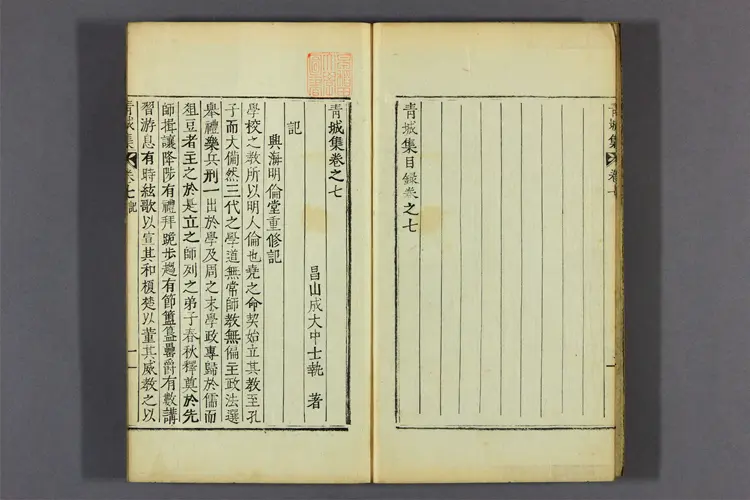 青城集卷
青城集目錄卷之七
青城集卷之七
昌山成大中士執 著
記
興海明倫堂重修記
學校之教所以明人倫也堯之命契始立其教至孔
子而大備然三代之學道無常師教無偏主政法選
舉禮樂兵刑一出於學及周之末學政專歸於儒而
俎豆者主之於是立之師列之弟子春秋釋奠於先
師揖讓降陟有禮拜跪步趨有節簠簋罍爵有數講
習游息有時絃歌以宣其和榎楚以董其威教之以
青城集 卷七 記
一